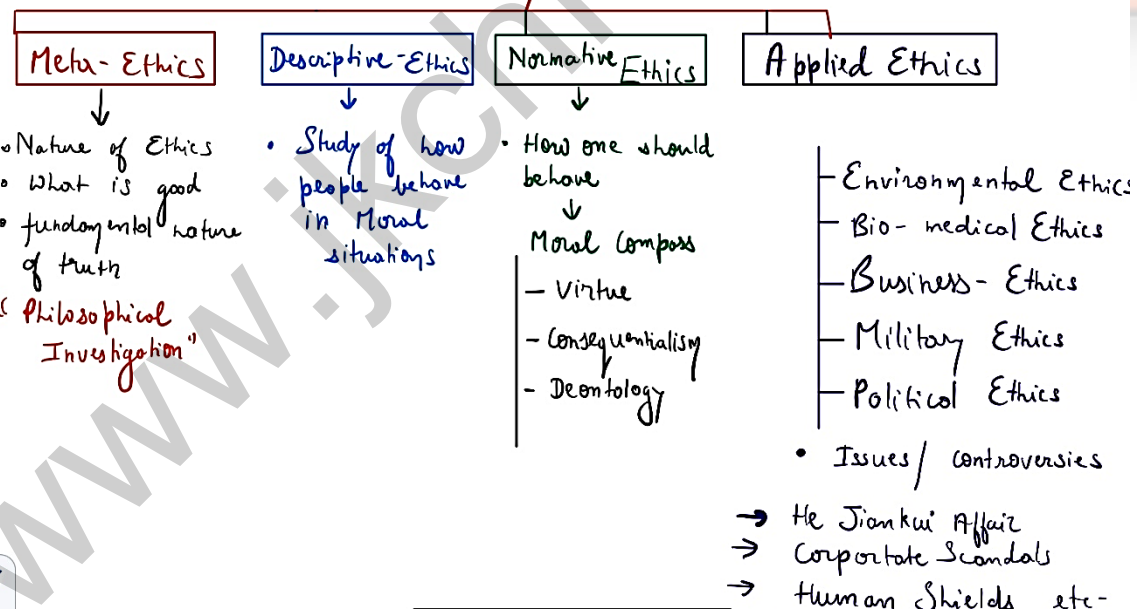 Meta- Ethics
Nature of Ethics
What is good
fundamental nature
of truth
Philosophical
Investigation"
Descriptive-Ethics
Study of how
people behave
in Moral
situations
Normative
Ethics
How one should
behave
Moral Compass
- Virtue
- Consequentialism
- Deontology
Applied Ethics
Environmental Ethics
Bio-medical Ethics
Business- Ethics
Military Ethics
Political Ethics
Issues/ controversies
→ He Jiankui Affair
→ Corportate Scandals
→ Human Shields etc-
www.jkch